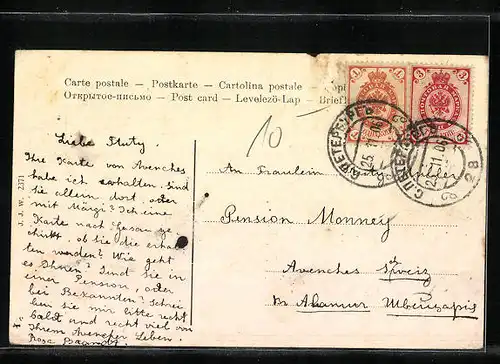 Carte postale — Postkarte — Cartolina postale —
Открытое-письмо — Post card — Levelező-Lap — Brief
10
С.ПЕТЕРБУРГЪ
25 11 06
28
J. J. W. 2371
Liebe Fluty.
Ihre Karte von Avenches
habe ich erhalten sind
sie allein dort, oder
mit Märgi? Ich eine
Karte nach
schickt, ob Sie die erhal-
ten werden? Wie geht
es Ihnen? Sind sie in
einer Pension, oder
bei Bekannten? Schrei-
ben sie mir bitte recht
bald und recht viel von
Ihrem Avencher Leben.
Rosa
An Fräulein
Pension Monney
Avenches Schweiz